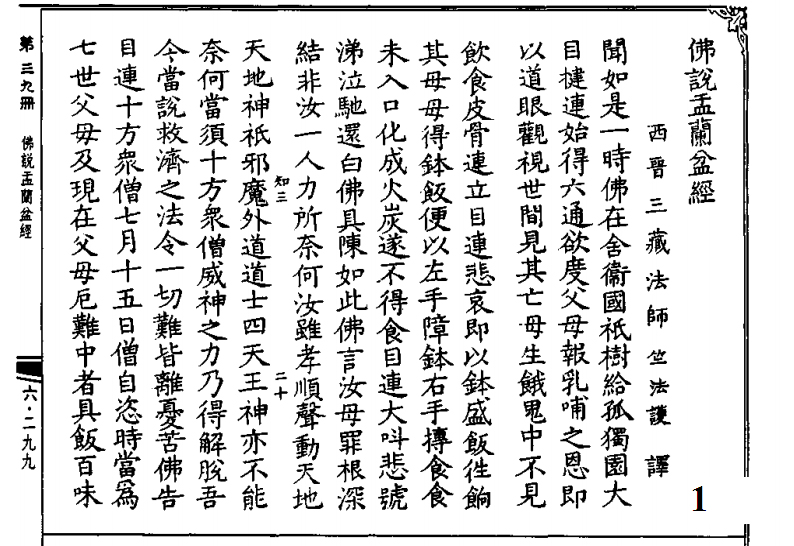 佛說盂蘭盆經
西晉三藏法師竺法護 譯
聞如是一時佛在舍衞國祇樹給孤獨園大
目揵連始得六通欲度父母報乳哺之恩即
以道眼觀視世間見其亡母生餓鬼中不見
飲食皮骨連立目連悲哀即以鉢盛飯徃餉
其母母得鉢飯便以左手障鉢右手摶食食
未入口化成火炭遂不得食目連大叫悲號
涕泣馳還白佛具陳如此佛言汝母罪根深
結非汝一人力所奈何汝雖孝順聲動天地
知三 二十
天地神祇邪魔外道道士四天王神亦不能
奈何當須十方衆僧威神之力乃得解脫吾
今當說救濟之法令一切難皆離憂苦佛告
目連十方衆僧七月十五日僧自恣時當為
七世父母及現在父母厄難中者具飯百味
第三九冊 佛說盂蘭盆經 六·二九九
1